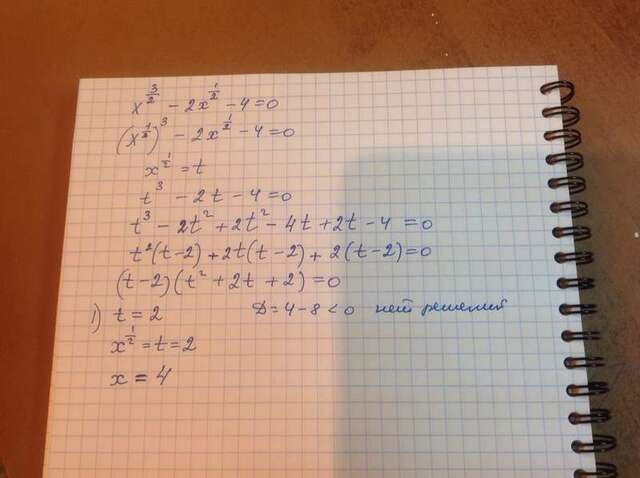 x^{3/2} - 2x^{1/2} - 4 = 0
(x^{1/2})^3 - 2x^{1/2} - 4 = 0
x^{1/2} = t
t^3 - 2t - 4 = 0
t^3 - 2t^2 + 2t^2 - 4t + 2t - 4 = 0
t^2(t-2) + 2t(t-2) + 2(t-2) = 0
(t-2)(t^2 + 2t + 2) = 0
1) t = 2 D = 4 - 8 < 0 нет решений
x^{1/2} = t = 2
x = 4